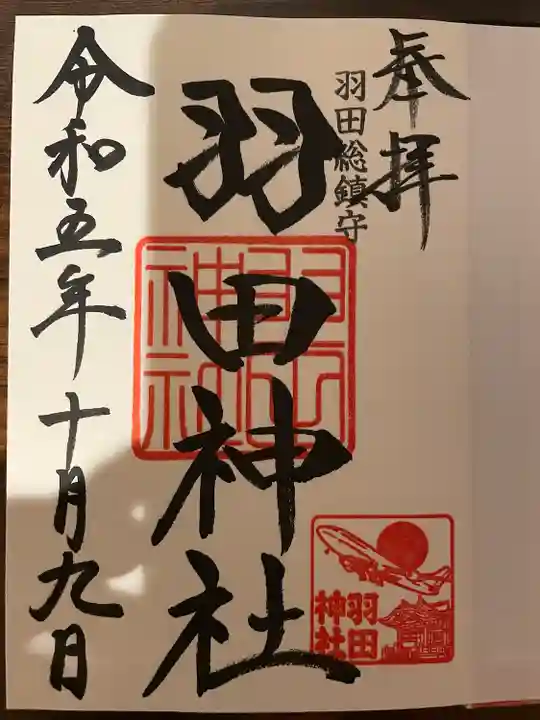 奉拝
羽田総鎮守
羽田神社
羽田
神社
羽田
神社
令和五年十月九日